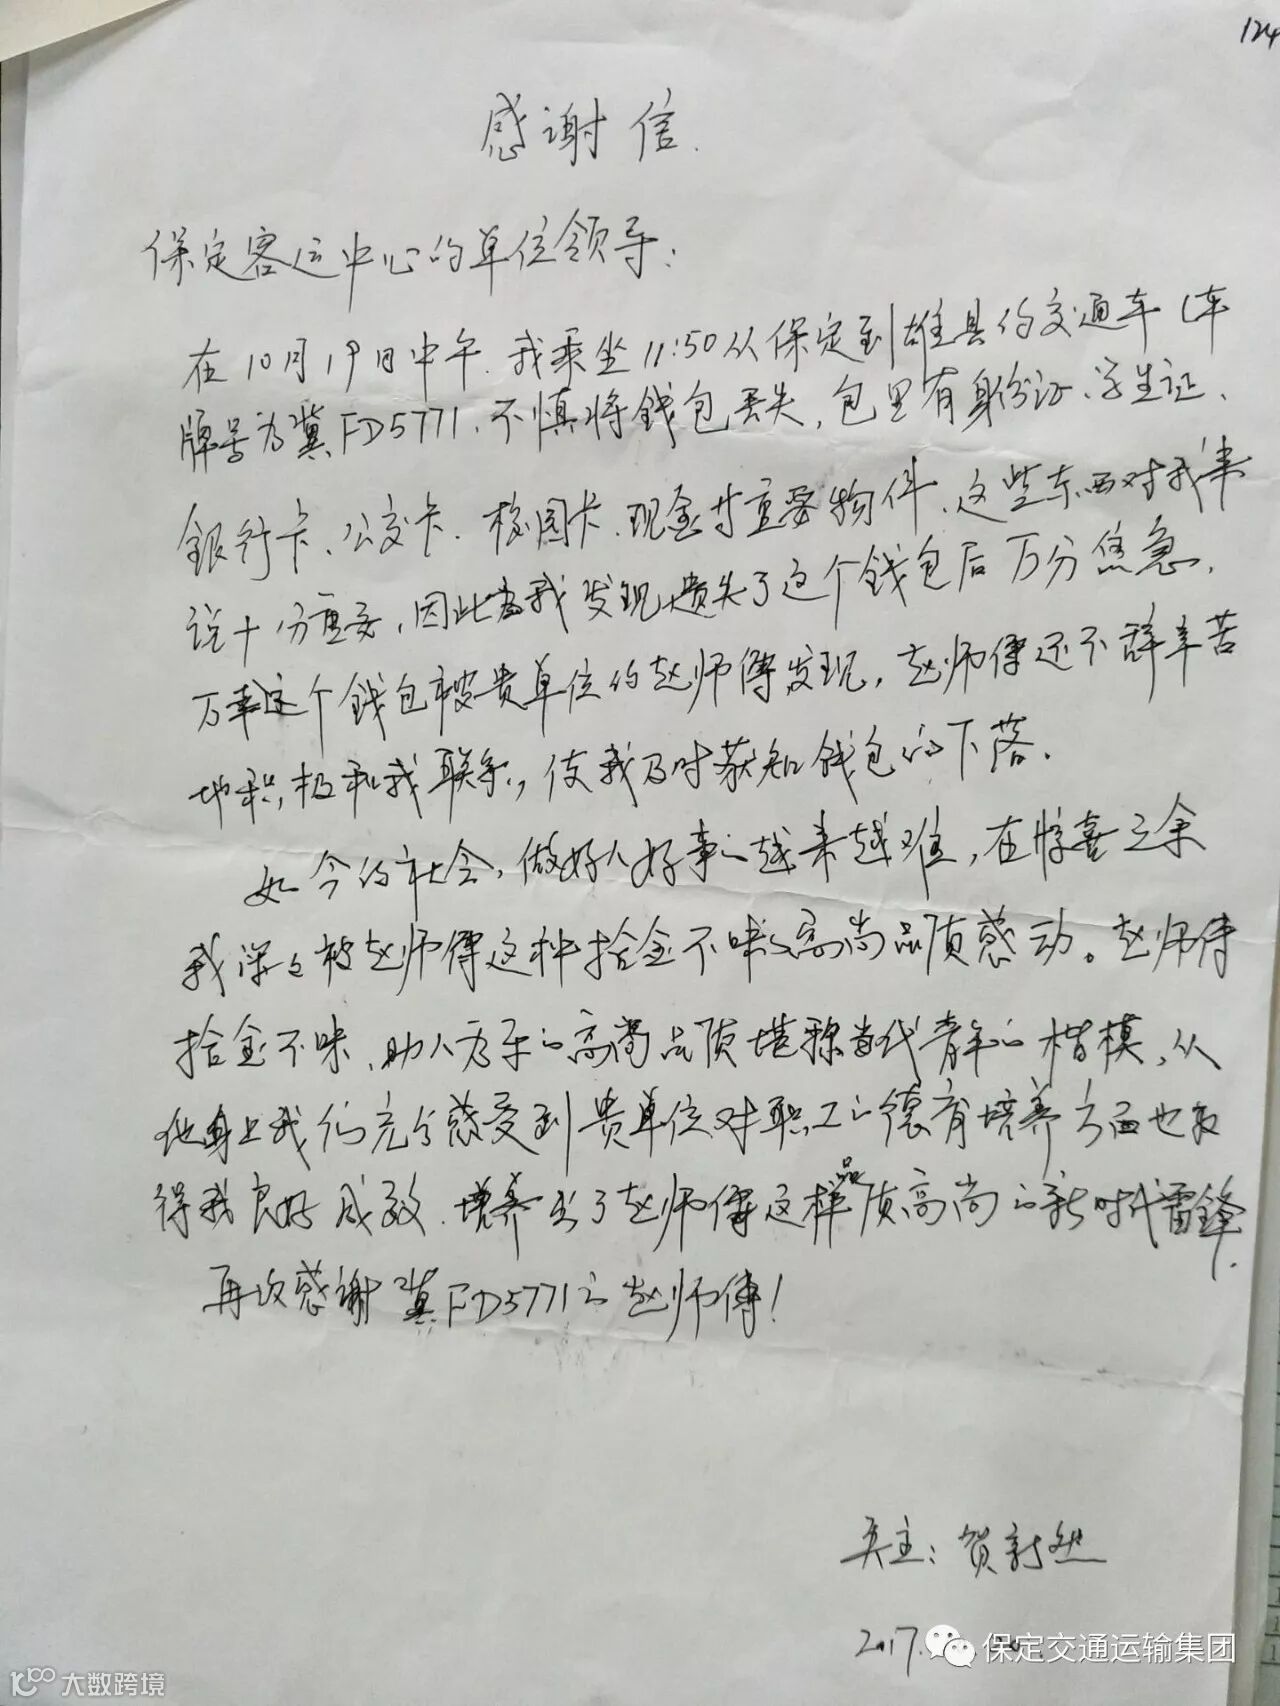 124
感谢信.
保定客运中心的单位领导:
在10月19日中午.我乘坐11:50从保定到雄县的交通车(车
牌号为冀FD5771.不慎将钱包丢失,包里有身份证、学生证、
银行卡、公交卡、校园卡、现金等重要物件、这些东西对我来
说十分重要,因此当我发现遗失了这个钱包后万分焦急,
万幸这个钱包被贵单位的赵师傅发现,赵师傅还不辞辛苦
地积极和我联系,使我及时获知钱包的下落.
如今的社会,做好人好事的越来越难,在惊喜之余
我深深被赵师傅这种拾金不昧的高尚品质感动。赵师傅
拾金不昧、助人为乐的高尚品质堪称当代青年的楷模、从
他身上我们充分感受到贵单位对职工的德育培养方面也取
得我良好成效.培养出了赵师傅这样品质高尚的新时代雷锋.
再次感谢冀FD5771的赵师傅!
失主:贺新然
2017.
保定交通运输集团
大数跨境